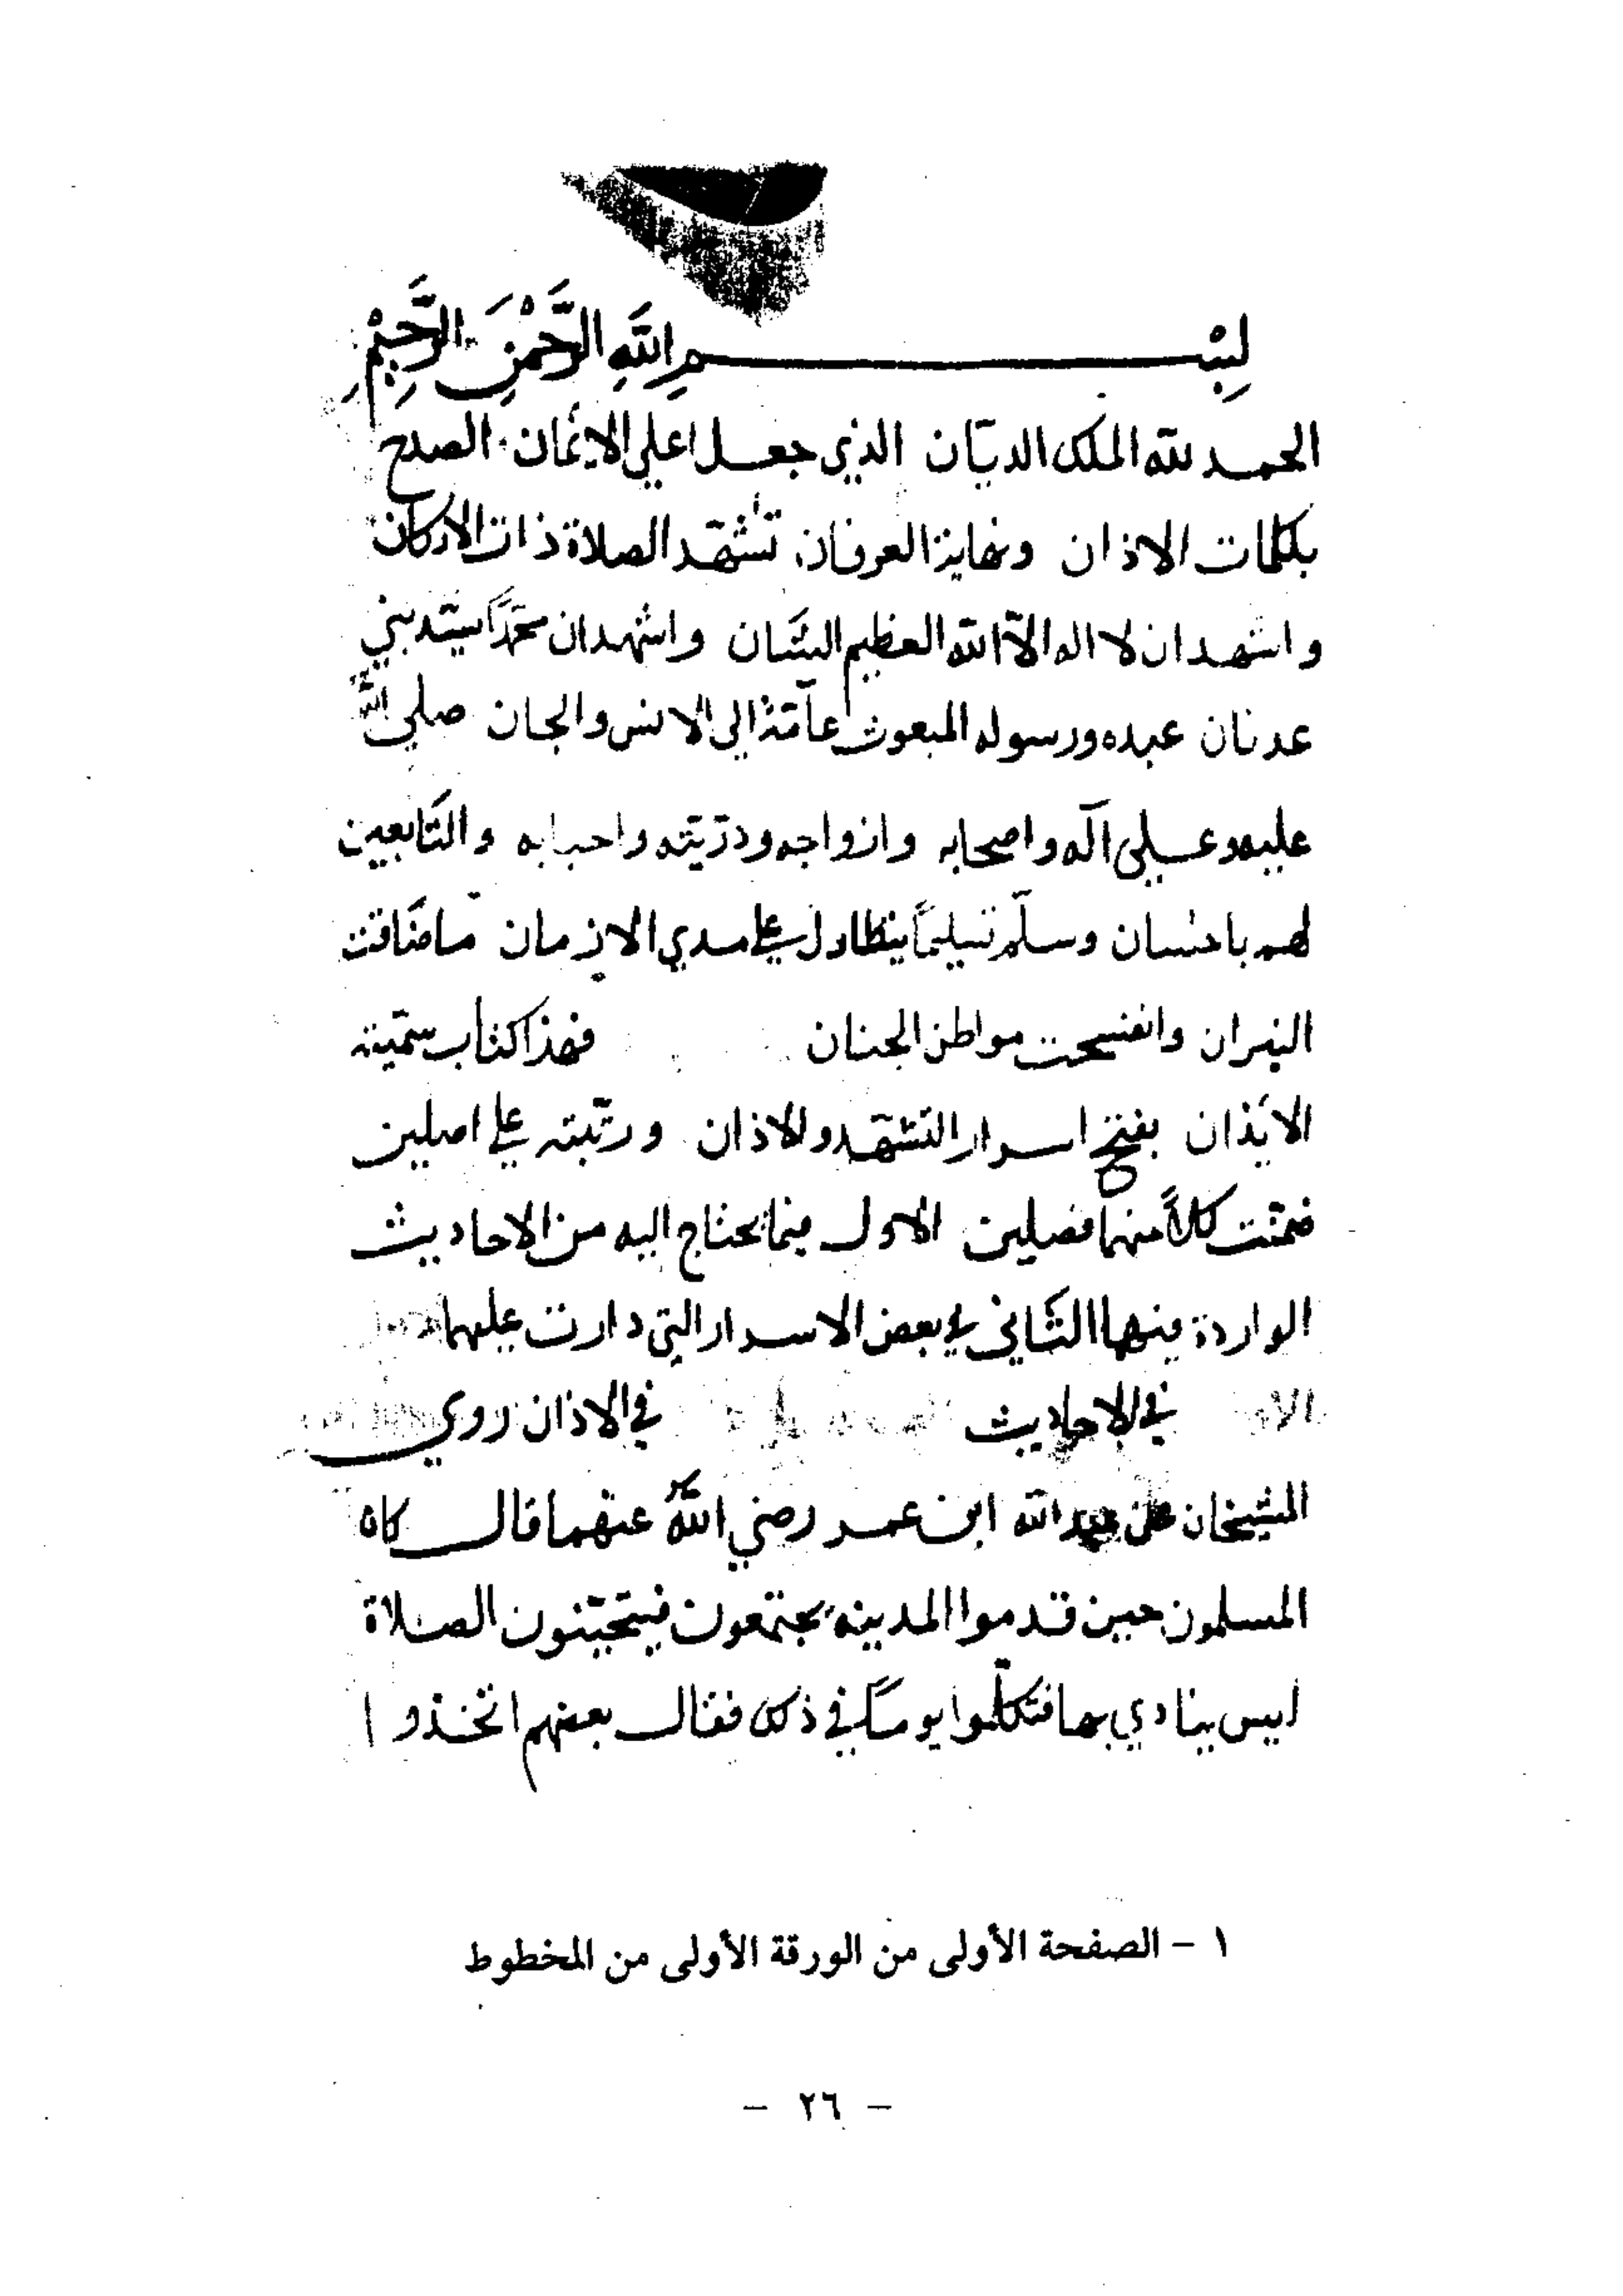 بِسْــــــمِ اللَّهِ الرَّحْمٰنِ الرَّحِيْمِ
الحمد لله الملك الديّان الذي جعل اعلي الايمان الصدح
بكلمات الاذان ونهاية العرفان تشهّد الصلاة ذات الاركان
واشهد ان لا اله الّا الله العظيم الشان واشهد ان محمّداً سيّد بني
عدنان عبده ورسوله المبعوث عامّة الي الانس والجان صلي الله
عليه وعلي آله واصحابه وازواجه وذرّيّته واحبابه والتّابعين
لهم باحسان وسلّم تسليماً يتطاول علي مدي الازمان ما ضاقت
النيران وانفسحت مواطن الجنان فهذا كتاب سمّيته
الايذان بفتح اسرار التشهّد والاذان ورتّبته علي اصلين
ضمّنت كلاً منهما فصلين الاول فيما يحتاج اليه من الاحاديث
الواردة فيهما الثاني في بعض الاسرار التي دارت عليهما
في الاحاديث في الاذان روي
الشيخان عن عبد الله ابن عمر رضي الله عنهما قال كان
المسلمون حين قدموا المدينه يجتمعون فيتحيّنون الصلاة
ليس ينادي بها فتكلّموا يوماً في ذلك فقال بعضهم اتخذوا
١ - الصفحة الأولى من الورقة الأولى من المخطوط
- ٢٦ -